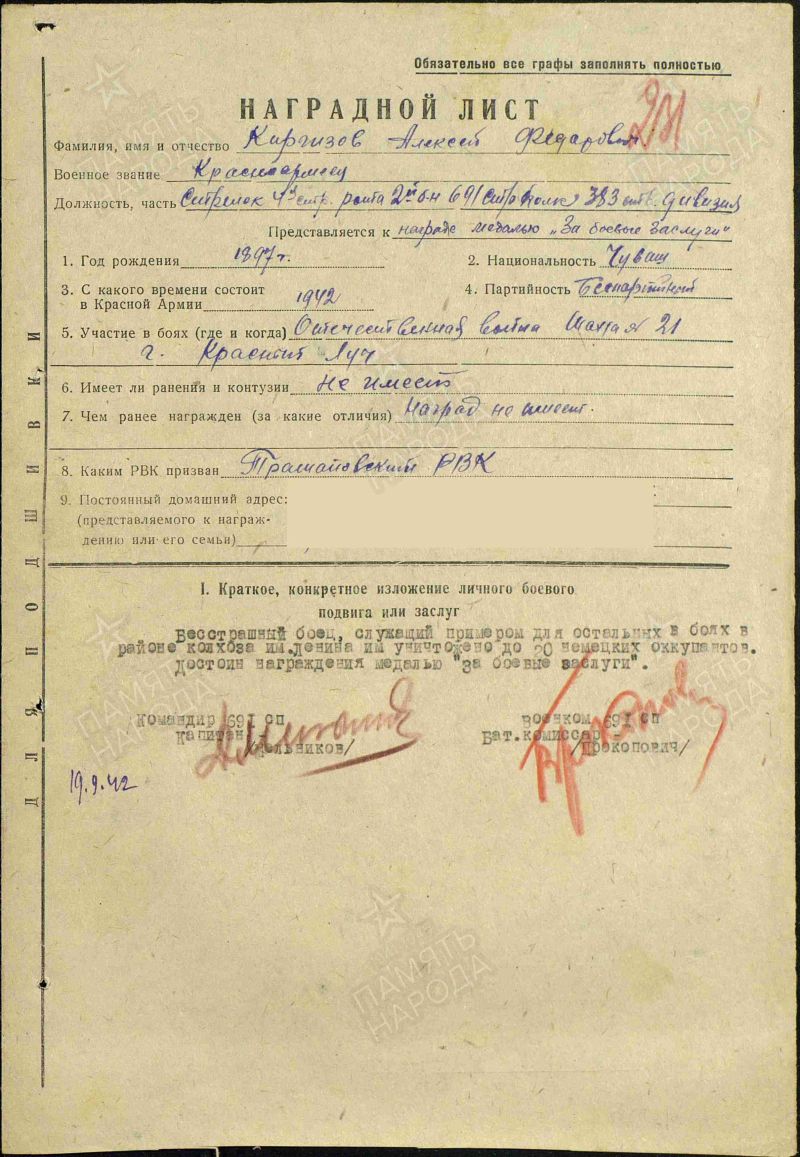 Обязательно все графы заполнять полностью
НАГРАДНОЙ ЛИСТ
Фамилия, имя и отчество Киргизов Алексей Федарович
Военное звание Красноармеец
Должность, часть Стрелок 4й стр. рота 2й б-н 691 стр полка 383 стр. дивизия
Представляется к награде медалью „За боевые заслуги"
1. Год рождения 1897 г.
2. Национальность Чуваш
3. С какого времени состоит
в Красной Армии 1942
4. Партийность Беспартийный
5. Участие в боях (где и когда) Отечественная война Шахта № 21
г. Красный Луч
6. Имеет ли ранения и контузии не имеет
7. Чем ранее награжден (за какие отличия) Наград не имеет.
8. Каким РВК призван РВК
9. Постоянный домашний адрес:
(представляемого к награж-
дению или его семьи)
I. Краткое, конкретное изложение личного боевого
подвига или заслуг
Бесстрашный боец, служащий примером для остальных в боях в
районе колхоза им.Ленина им уничтожено до 20 немецких оккупантов.
Достоин награждения медалью "за боевые заслуги".
Командир 691 сп
Капитан
Военком 691 сп
Бат.комиссар -
/Прокопович/
19.9.42
ДЛЯ ПОДШИВКИ
ПАМЯТЬ НАРОДА